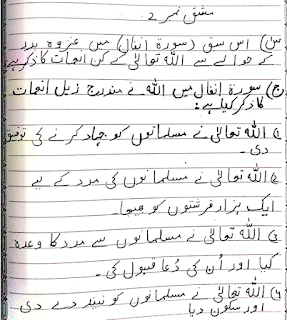 مشق نمبر 2
(س) اس سبق (سورة انفال) میں غزوہ بدر
کے حوالے سے اللہ تعالیٰ کے کن انعامات کا ذکر ہے
(ج) سورة انفال میں اللہ نے مندرجہ ذیل انعامات
کا ذکر کیا ہے:
(1) اللہ تعالیٰ نے مسلمانوں کو جہاد کرنے کی توفیق
دی۔
(2) اللہ تعالیٰ نے مسلمانوں کی مدد کے لیے
ایک ہزار فرشتوں کو بھیجا۔
(3) اللہ تعالیٰ نے مسلمانوں سے مدد کا وعدہ
کیا اور اُن کی دُعا قبول کی۔
(4) اللہ تعالیٰ نے مسلمانوں کو نیند دے دی
اور سکون دیا